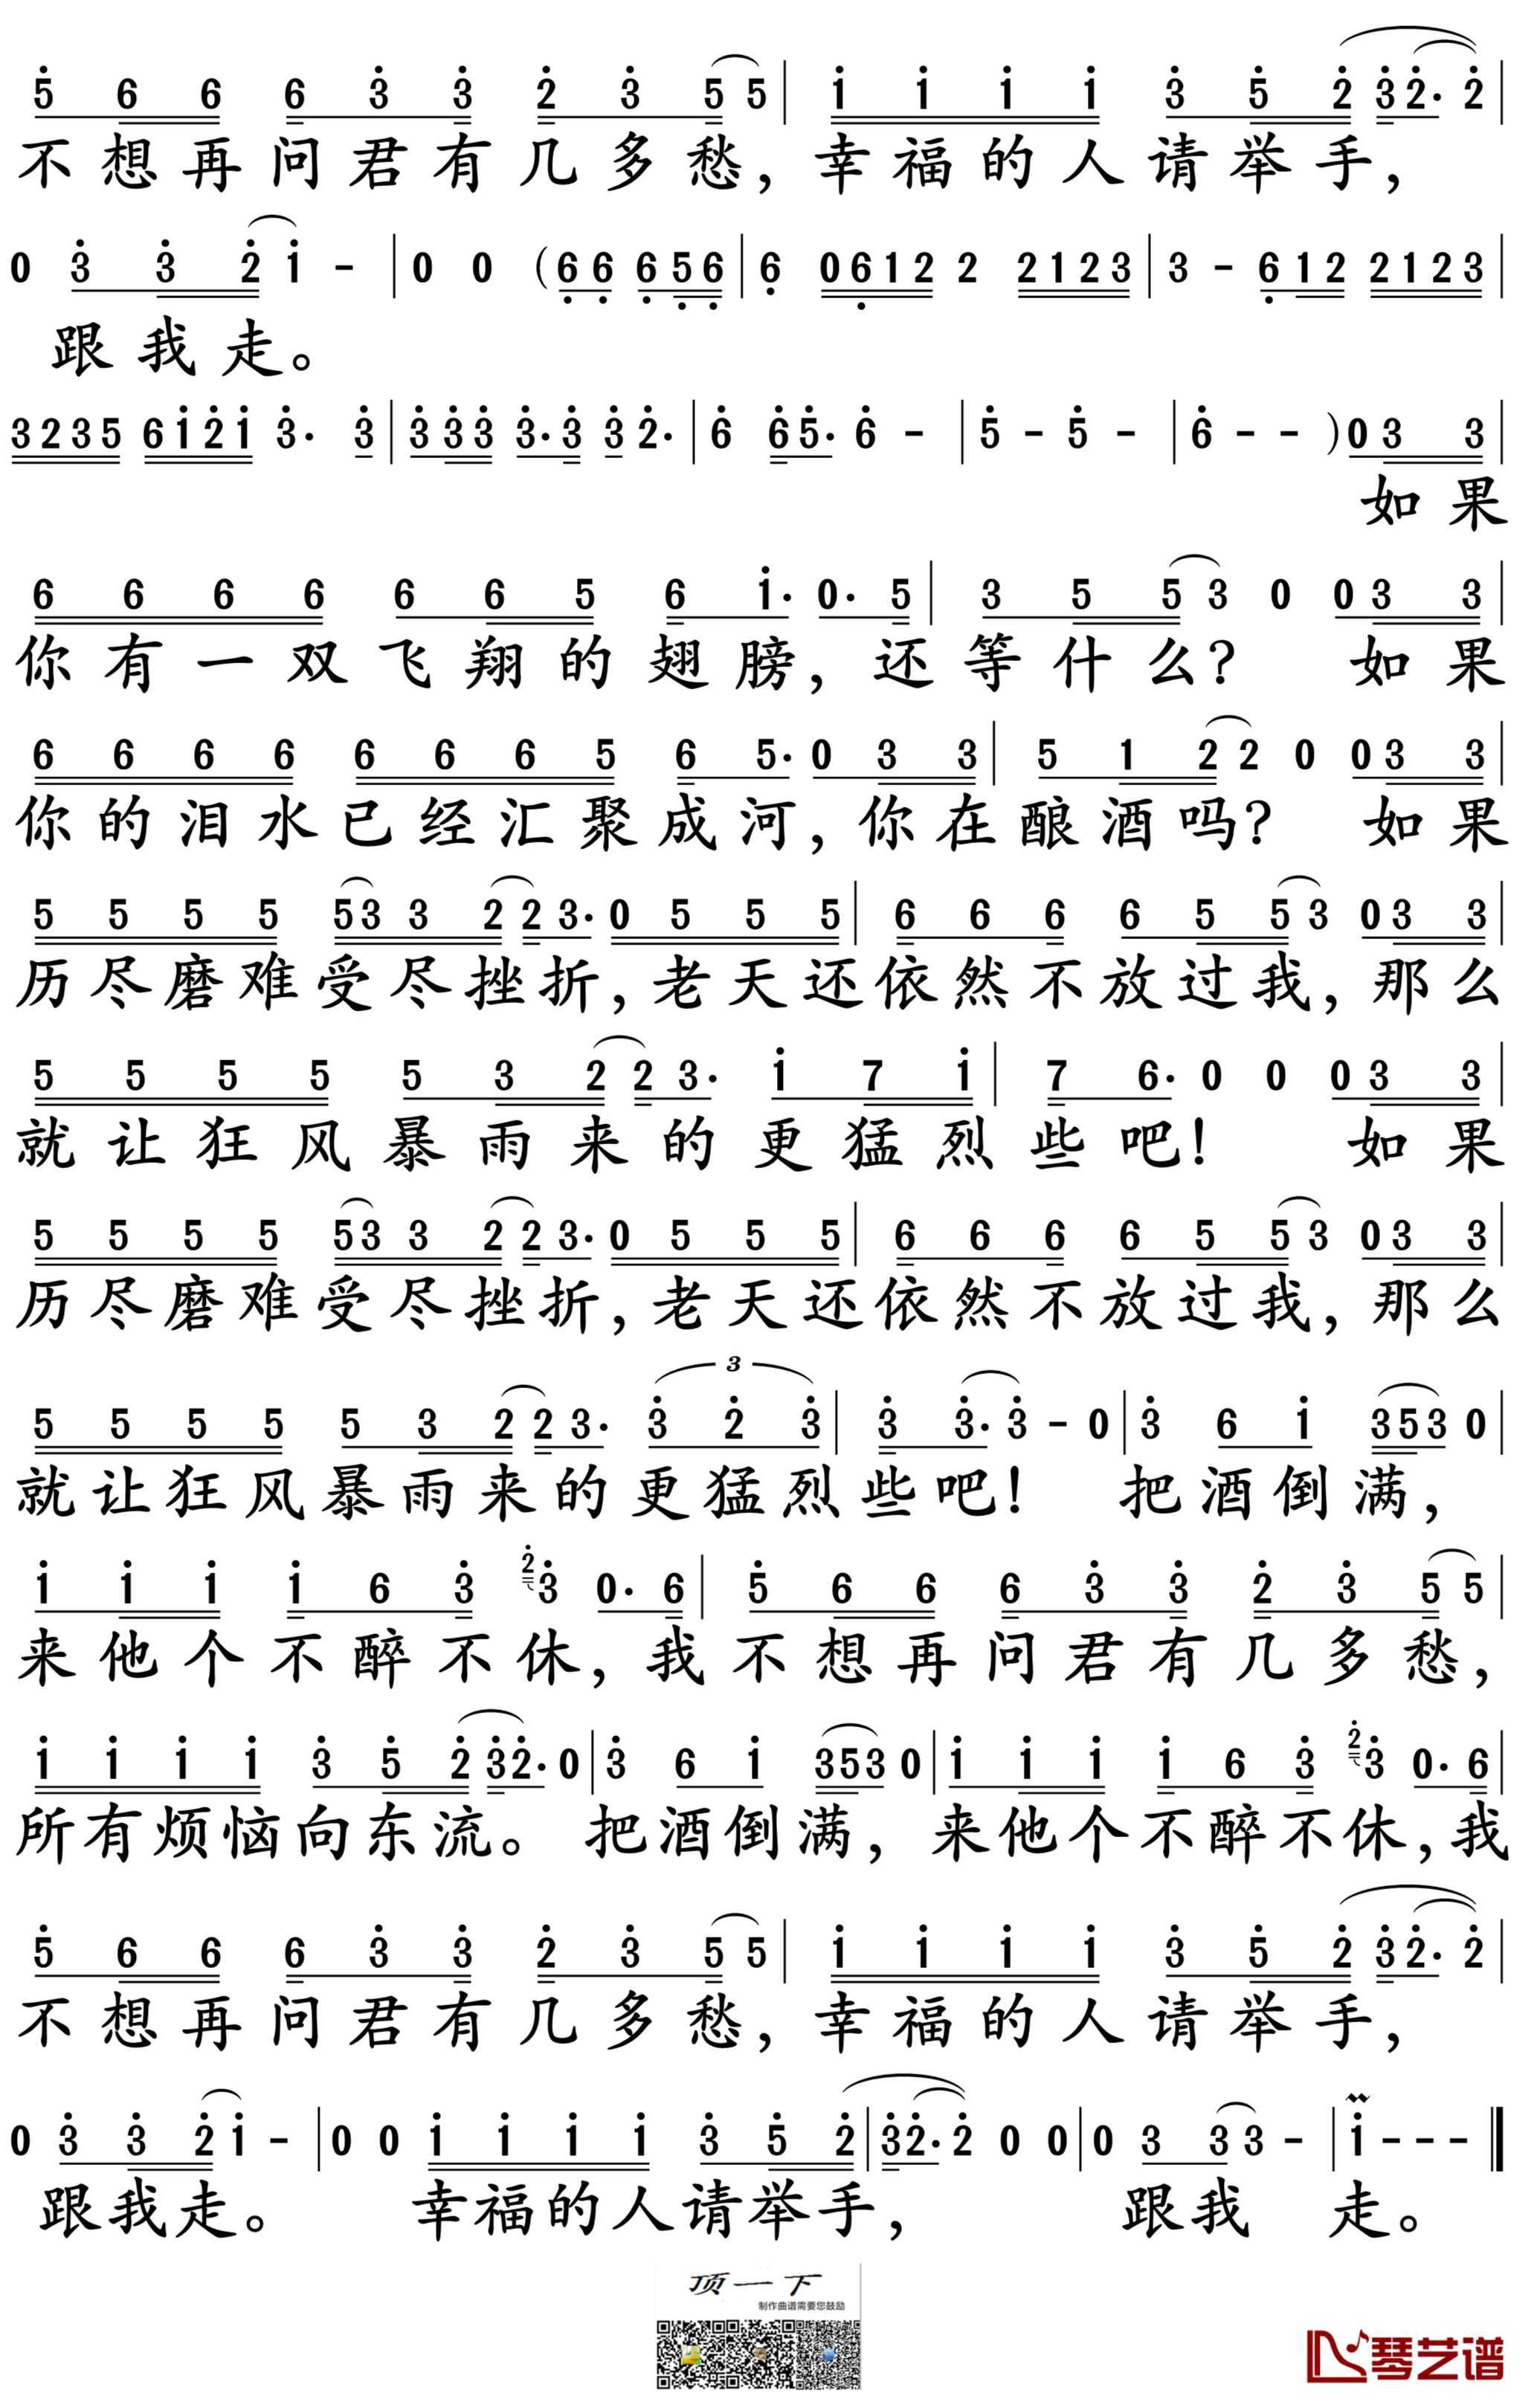 5 6 6 6 3 3 2 3 5 5 | 1 1 1 1 3 5 2 3 2· 2 |
不想再问君有几多愁，幸福的人请举手，
0 3 3 2 1 - | 0 0 （6 6 6 5 6 | 6 0 6 1 2 2 2 1 2 3 | 3 - 6 1 2 2 1 2 3 |
跟我走。
3 2 3 5 6 1 2 1 3· 3 | 3 3 3 3· 3 3 2· | 6 6 5· 6 - | 5 - 5 - | 6 - - ）0 3 3 |
如果
6 6 6 6 6 6 5 6 1· 0· 5 | 3 5 5 3 0 0 3 3 |
你有一双飞翔的翅膀，还等什么？ 如果
6 6 6 6 6 6 6 5 6 5· 0 3 3 | 5 1 2 2 0 0 3 3 |
你的泪水已经汇聚成河，你在酿酒吗？ 如果
5 5 5 5 5 3 3 2 2 3· 0 5 5 5 | 6 6 6 6 5 5 3 0 3 3 |
历尽磨难受尽挫折，老天还依然不放过我，那么
5 5 5 5 5 3 2 2 3· 1 7 1 | 7 6· 0 0 0 3 3 |
就让狂风暴雨来的更猛烈些吧！ 如果
5 5 5 5 5 3 3 2 2 3· 0 5 5 5 | 6 6 6 6 5 5 3 0 3 3 |
历尽磨难受尽挫折，老天还依然不放过我，那么
3
5 5 5 5 5 3 2 2 3· 3 2 3 | 3 3· 3 - 0 | 3 6 1 3 5 3 0 |
就让狂风暴雨来的更猛烈些吧！ 把酒倒满，
1 1 1 1 6 3 2 3 0· 6 | 5 6 6 6 3 3 2 3 5 5 |
来他个不醉不休，我不想再问君有几多愁，
1 1 1 1 3 5 2 3 2· 0 | 3 6 1 3 5 3 0 | 1 1 1 1 6 3 2 3 0· 6 |
所有烦恼向东流。把酒倒满，来他个不醉不休，我
5 6 6 6 3 3 2 3 5 5 | 1 1 1 1 3 5 2 3 2· 2 |
不想再问君有几多愁，幸福的人请举手，
0 3 3 2 1 - | 0 0 1 1 1 1 3 5 2 | 3 2· 2 0 0 | 0 3 3 3 - | 1 - - - ‖
跟我走。 幸福的人请举手， 跟我 走。
顶一下
制作曲谱需要您鼓励
琴艺谱